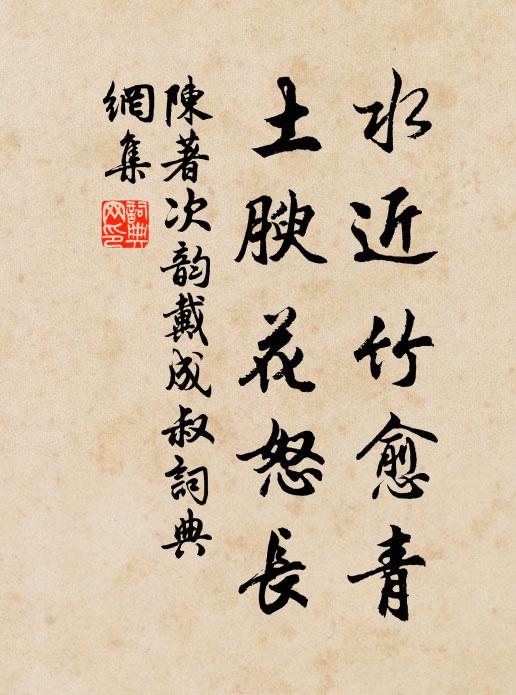 水近竹愈青
土腴花怒長
陳著次韵戴成叔詞典
網集
詞典
网印